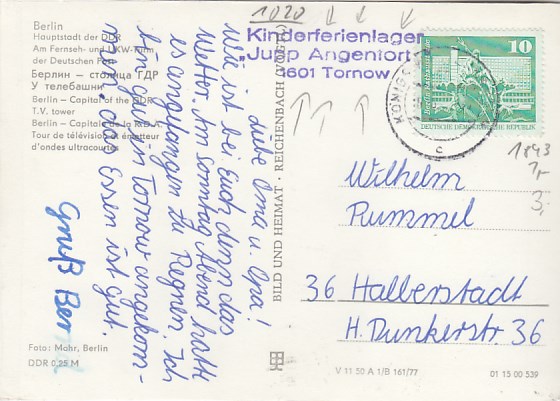 Berlin
Hauptstadt der DDR
Am Fernseh- und UKW-Turm
der Deutschen Post
Берлин – столица ГДР
У телебашни
Berlin – Capital of the GDR
T.V. tower
Berlin – Capitale de la R.D.A.
Tour de télévision et émetteur
d'ondes ultracourtes
Foto: Mohr, Berlin
DDR 0,25 M
Liebe Oma u. Opa!
Wie ist bei Euch denn das
Wetter. Im Sonntag Abend hatt
es angefangen zu Regnen. Ich
bin gut in Tornow angekom-
men, das Essen ist gut.
Gruß Bernd
BILD UND HEIMAT · REICHENBACH (VOGTL)
1020
Kinderferienlager
Jupp Angenfort
1601 Tornow
10
DEUTSCHE DEMOKRATISCHE REPUBLIK
c
1843
1,-
3,-
Wilhelm
Rummel
36 Halberstadt
H. Dunkerstr. 36
V 11 50 A 1/B 161/77
01 15 00 539